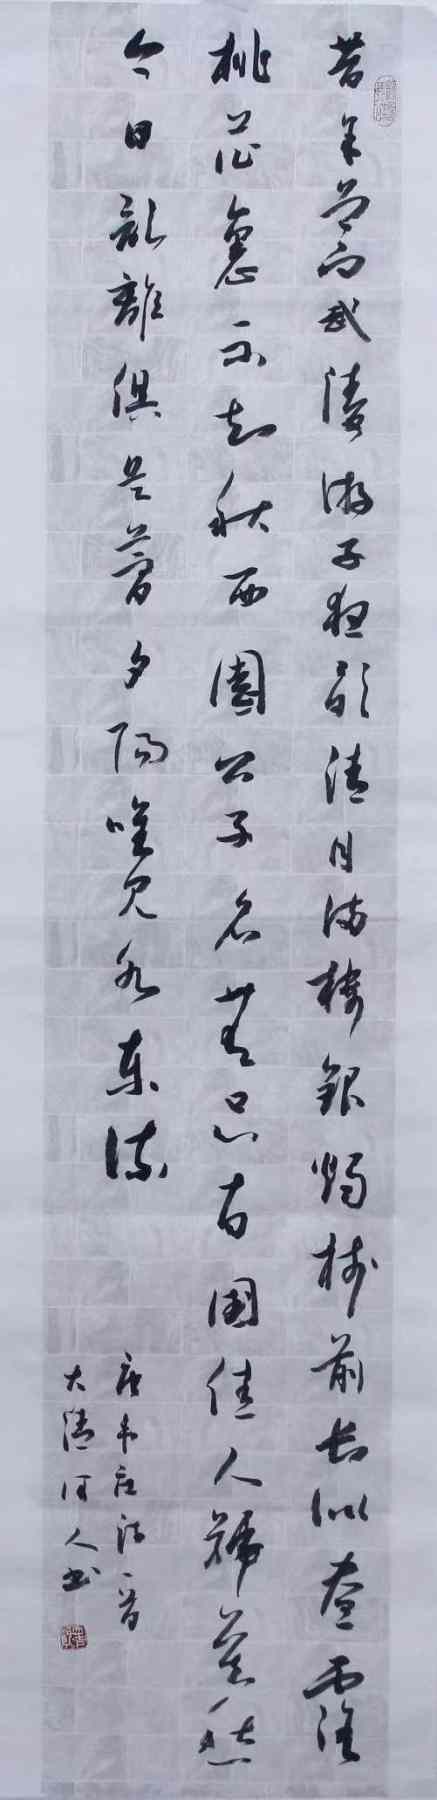 昔年曾向武陵游子夜歌清月满楼银烛树前长似昼露
桃花裏不知秋西園公子名無忌南國佳人號莫愁
今日乱離俱是夢夕陽唯見水東流
唐韦庄诗一首
大清河人书